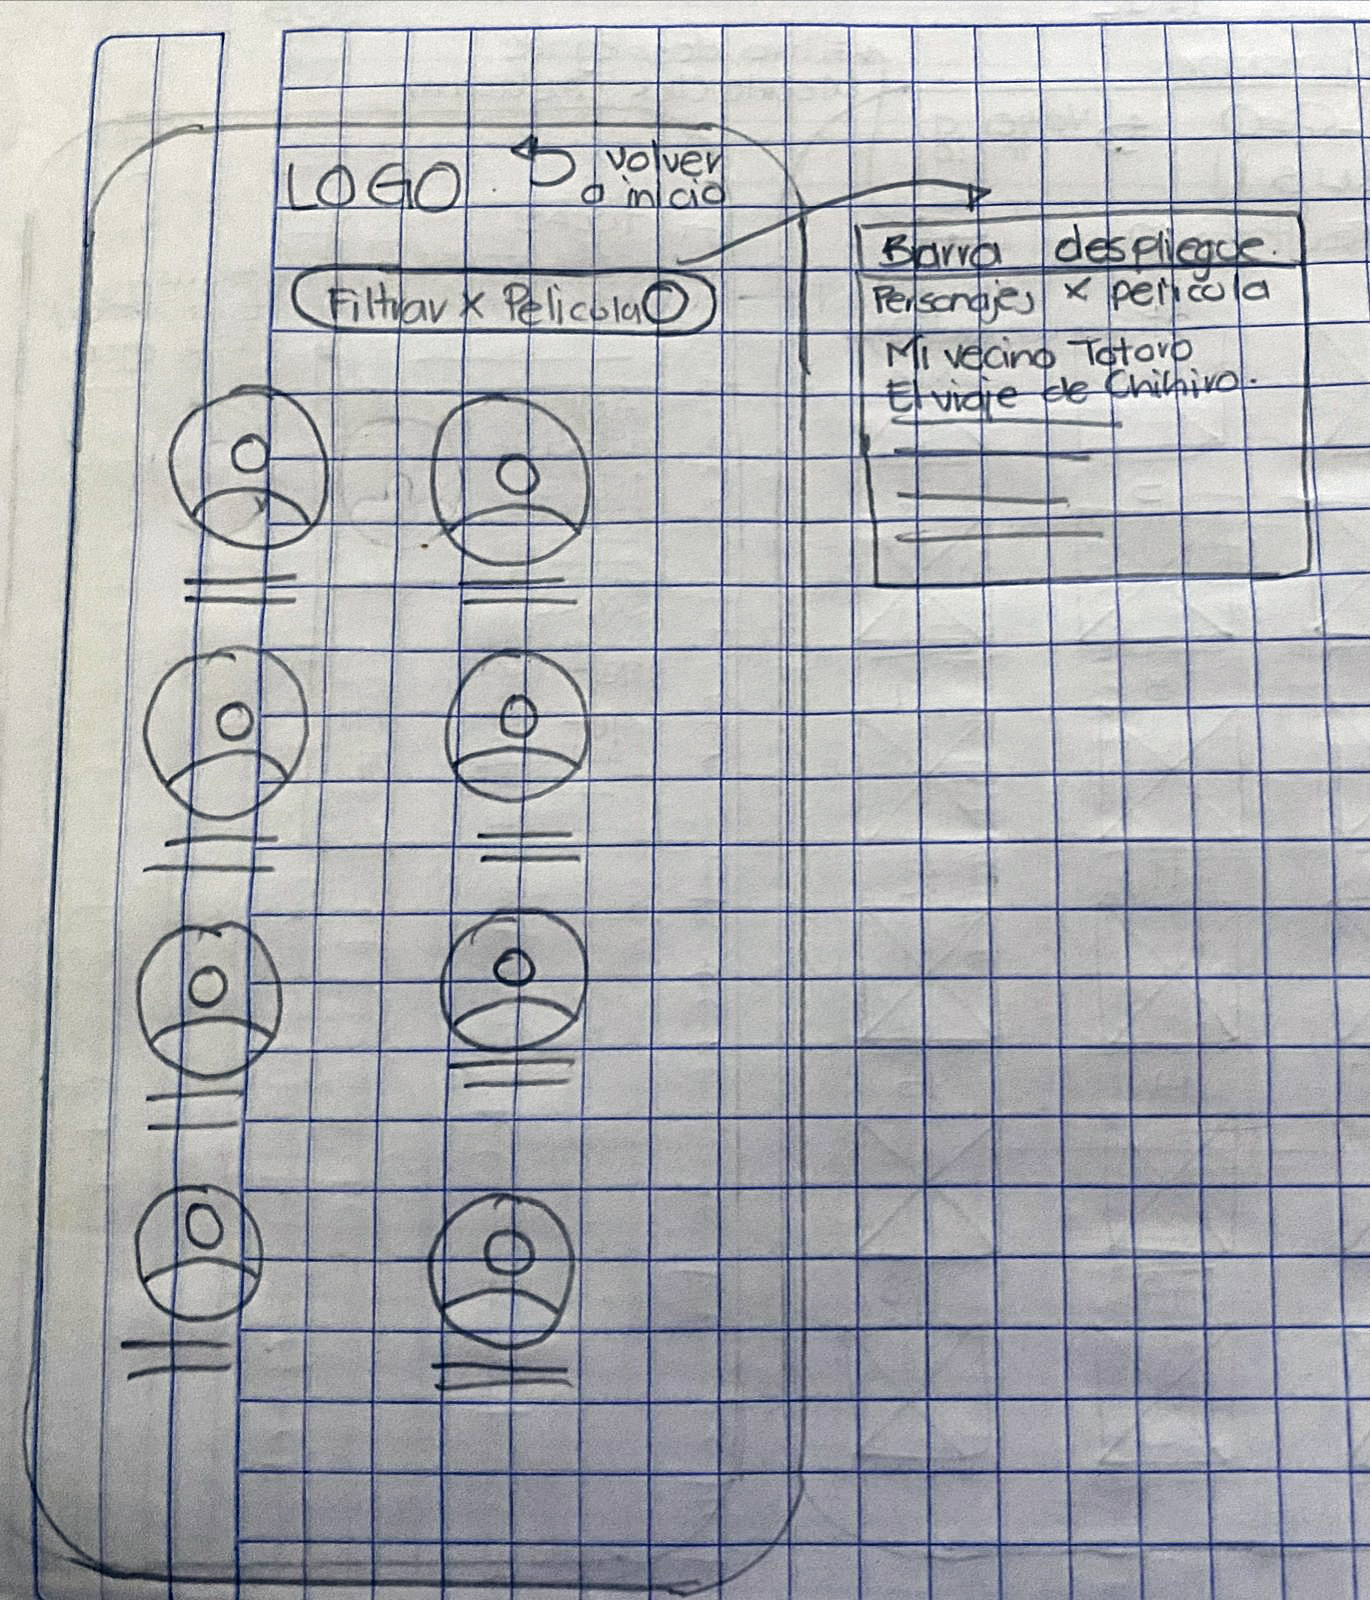 LOGO
volver
a inicio
Filtrar x Pelicula
Barra despliegue.
Personajes x pelicula
Mi vecino Totoro
El viaje de Chihiro.